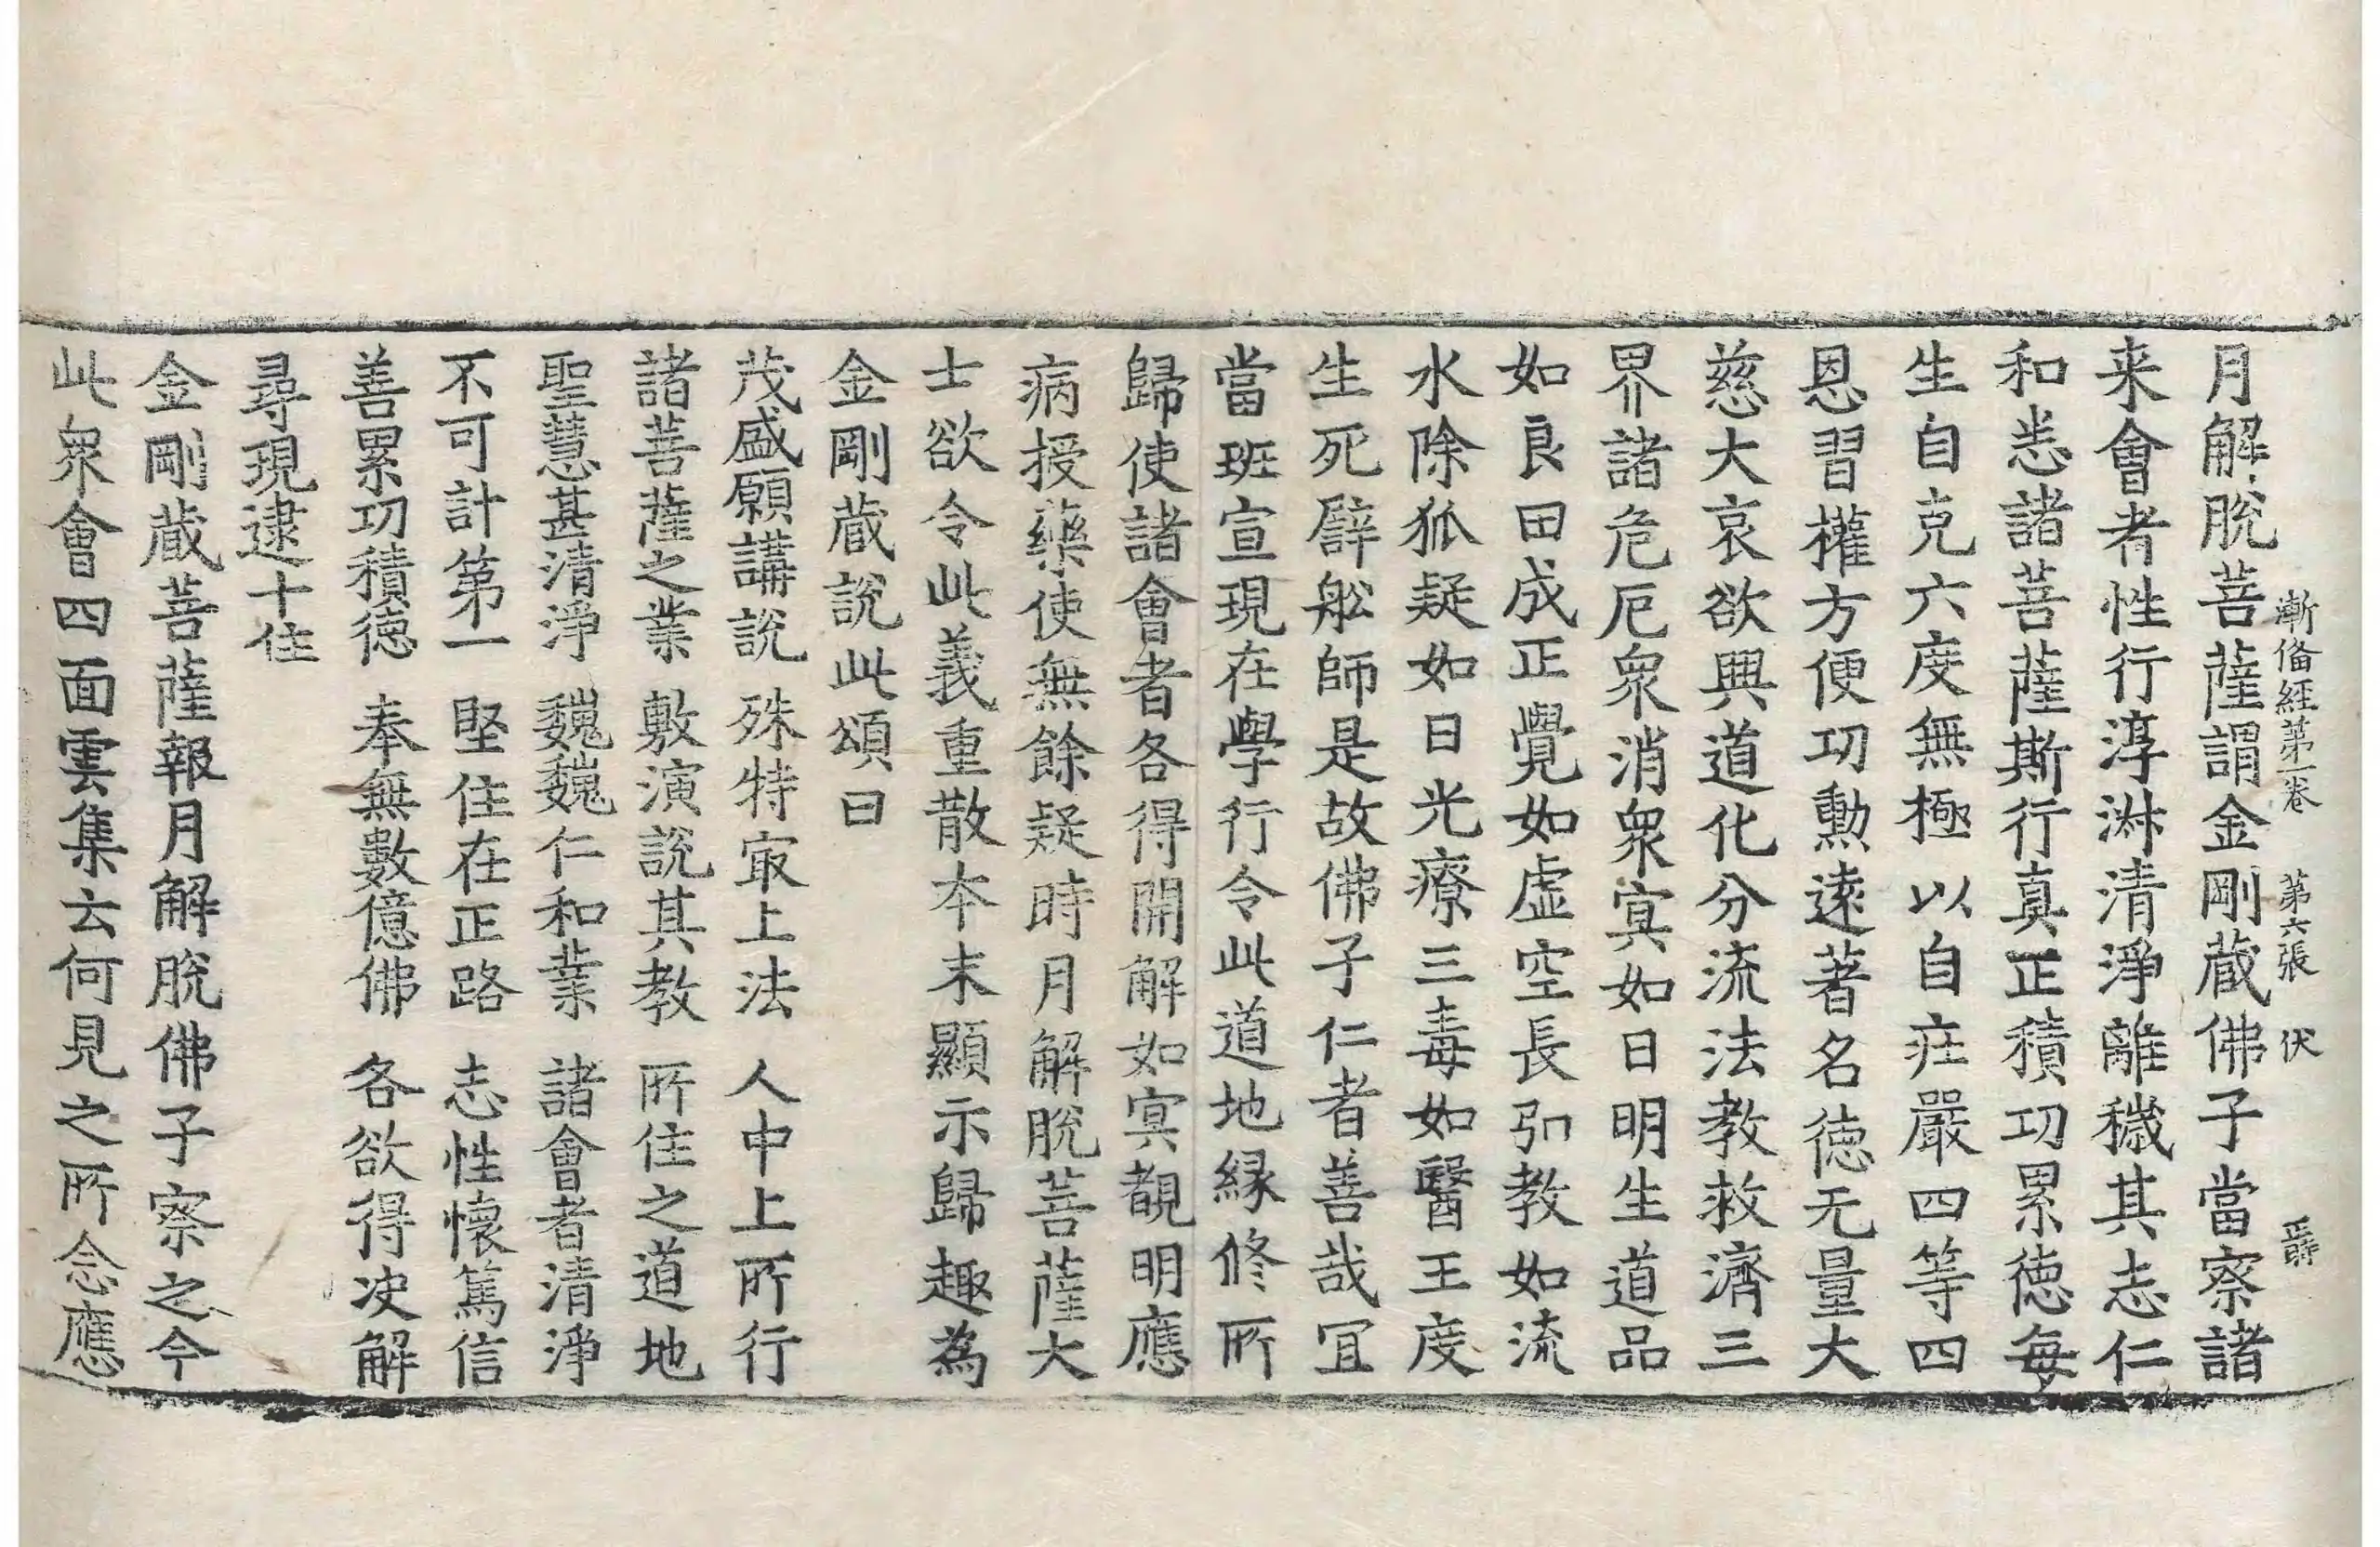 漸俻經第一卷 第六張 伏
月解脫菩薩謂金剛蔵佛子當察諸
来會者性行淳淋清淨離穢其志仁
和恙諸菩薩斯行真正積功累徳每
生自克六度無極以自疘嚴四等四
恩習權方便功勲逺著名德无量大
慈大哀欲興道化分流法教救濟三
界諸危厄衆消衆冥如日明生道品
如良田成正覺如虚空長弘教如流
水除狐疑如日光療三毒如醫王度
生死辟舩師是故佛子仁者善哉冝
當班宣現在學行令此道地縁修所
歸使諸會者各得開解如冥覩明應
病授藥使無餘疑時月解脫菩薩大
士欲令此義重散本末顯示歸趣為
金剛蔵說此頌曰
茂盛願講說 殊特㝡上法 人中上所行
諸菩薩之業 敷演說其教 所住之道地
聖慧甚清淨 巍巍仁和業 諸會者清淨
不可計第一 堅住在正路 志性懷篤信
善累功積徳 奉無數億佛 各欲得决解
尋現逮十住
金剛蔵菩薩報月解脫佛子察之今
此衆會四面雲集云何見之所念應